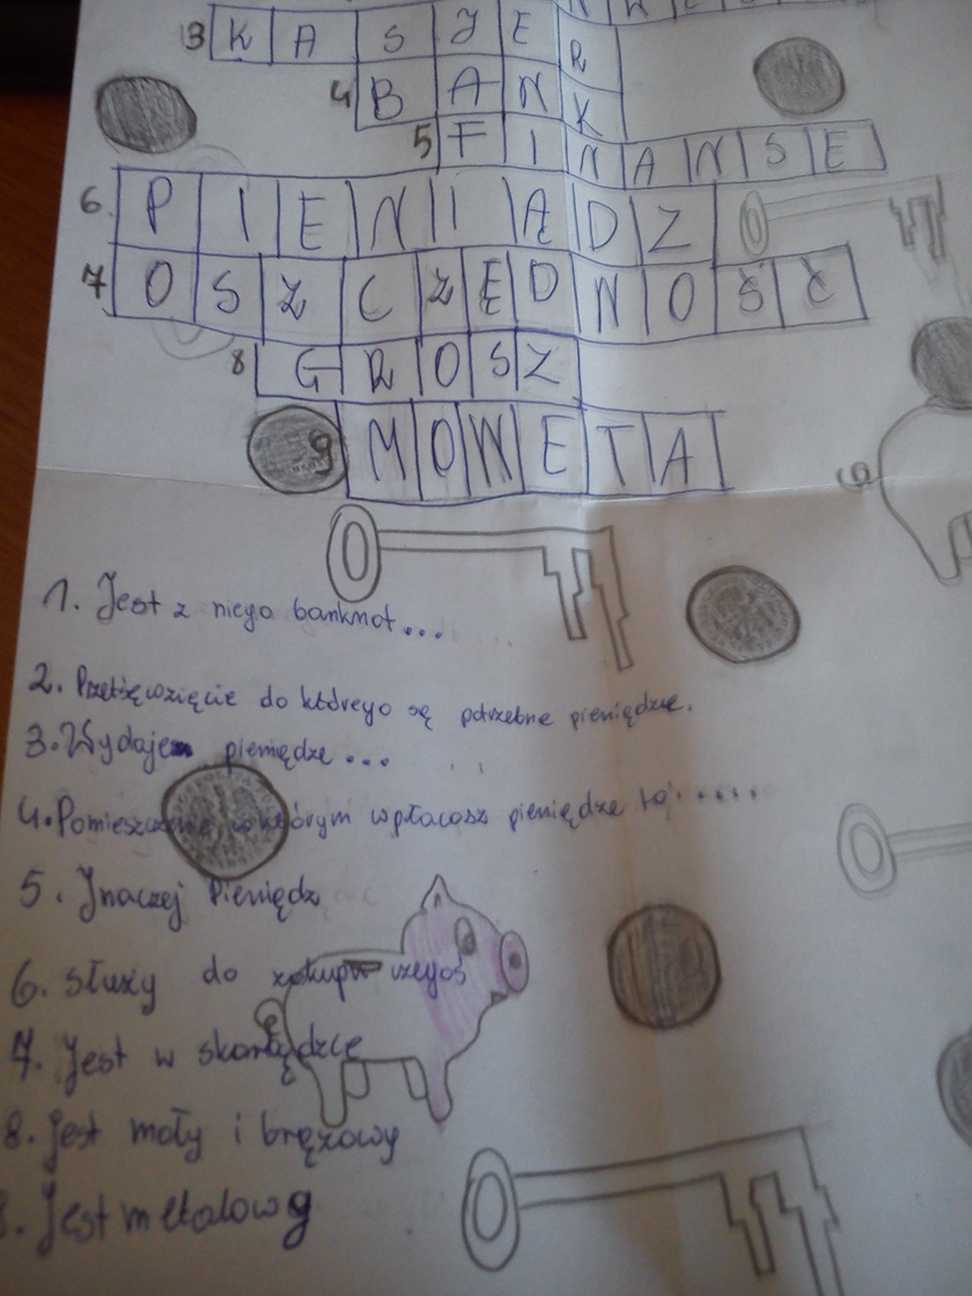 3 KASJER
R
4 BANK
5 FINANSE
6. PIENIĄDZ
7 OSZCZĘDNOŚĆ
8 GROSZ
9 MONETA
1. Jest z niego banknot...
2. do którego są potrzebne pieniądze.
3. Wydaje pieniądze...
4. Pomieszczenie w którym wpłacasz pieniądze to.....
5. Inaczej Pieniądz
6. Służy do zakupu czegoś
7. Jest w skarbądzce
8. Jest mały i brązowy
Jest metalowy